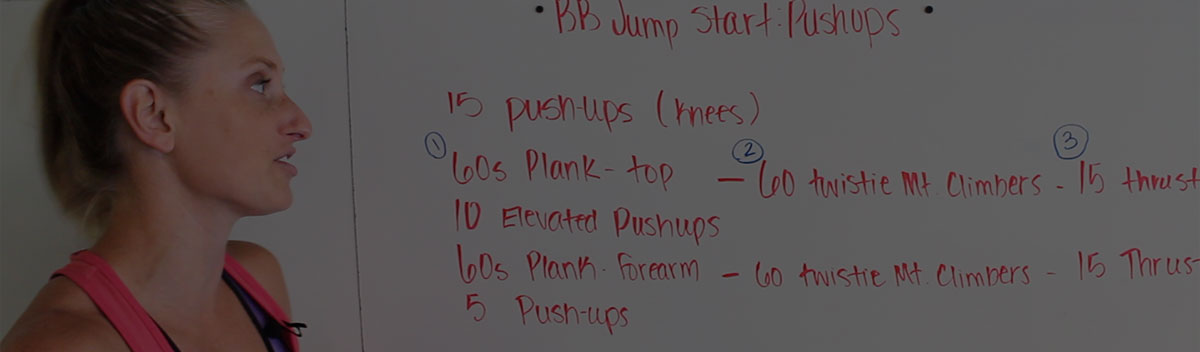 • BB Jump Start: Pushups •
15 push-ups (knees)
① 60s Plank - top — ② 60 twistie Mt. Climbers - ③ 15 thrust
10 Elevated Pushups
60s Plank. Forearm - 60 twistie Mt. Climbers - 15 Thrus
5 Push-ups